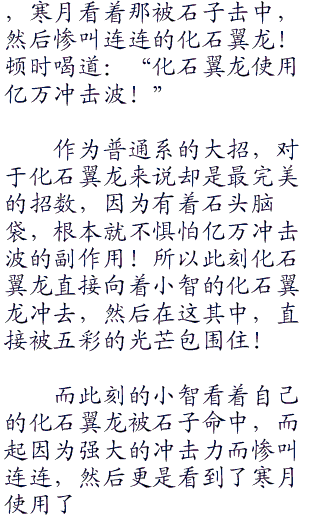 ，寒月看着那被石子击中，
然后惨叫连连的化石翼龙！
顿时喝道：“化石翼龙使用
亿万冲击波！”
作为普通系的大招，对
于化石翼龙来说却是最完美
的招数，因为有着石头脑
袋，根本就不惧怕亿万冲击
波的副作用！所以此刻化石
翼龙直接向着小智的化石翼
龙冲去，然后在这其中，直
接被五彩的光芒包围住！
而此刻的小智看着自己
的化石翼龙被石子命中，而
起因为强大的冲击力而惨叫
连连，然后更是看到了寒月
使用了